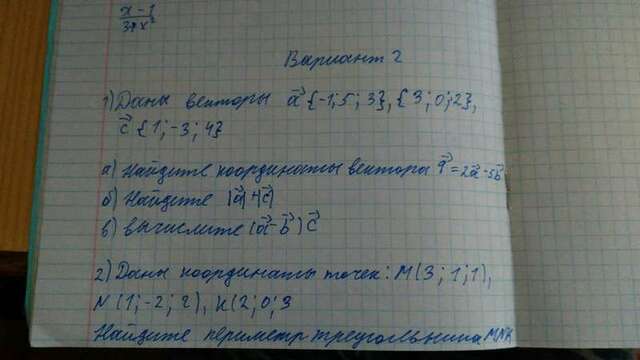 x-1
3+x²
Вариант 2
1) Даны векторы a⃗ {-1; 5; 3}, { 3; 0; 2},
c⃗ {1; -3; 4}
а) Найдите координаты векторы q⃗ = 2a⃗ - 5b⃗
б) Найдите |a⃗|+|c⃗|
в) вычислите (a⃗ - b⃗) c⃗
2) Даны координаты точек: M(3; 1; 1),
N (1; -2; 2), K(2; 0; 3
Найдите периметр треугольника MNK